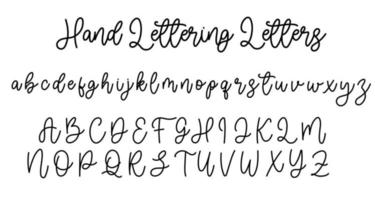 Hand Lettering Letters
abcdefghijklmnopqrstuvwxyz
ABCDEFGHIJKLM
NOPQRSTUVWXYZ